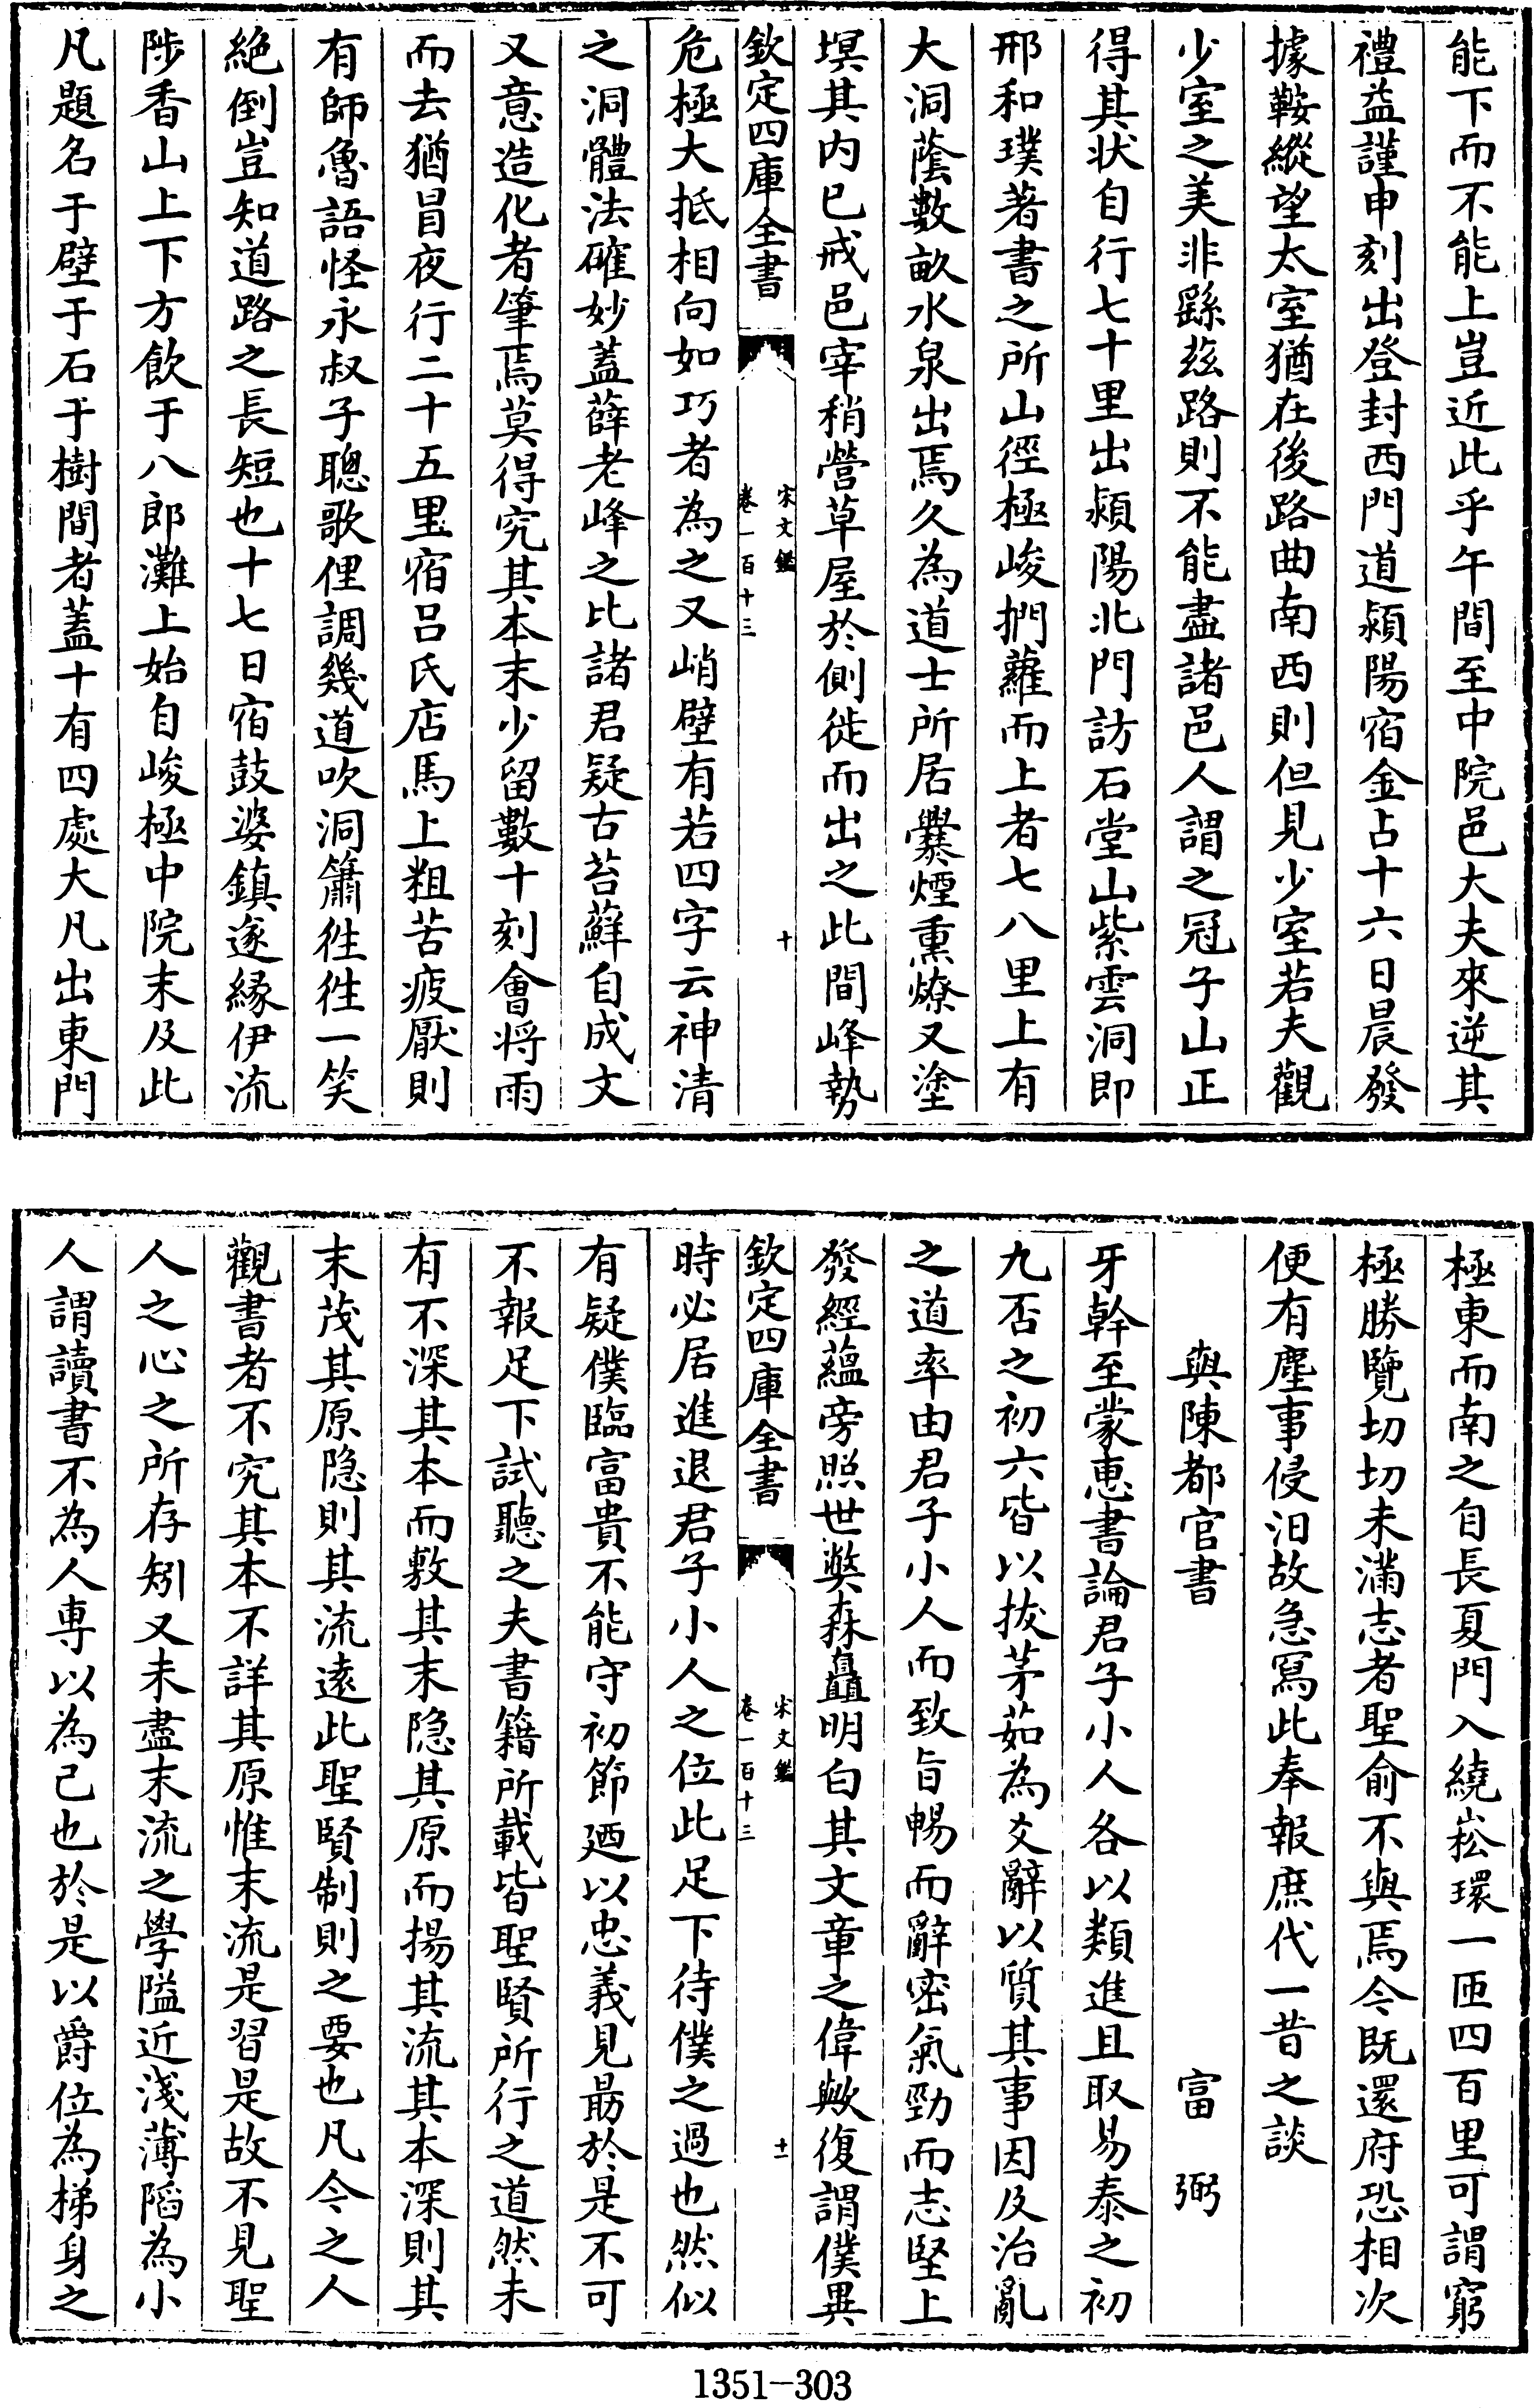 能下而不能上豈近此乎午間至中院邑大夫來逆其
禮益謹申刻出登封西門道潁陽宿金占十六日晨發
據鞍縱望太室猶在後路曲南西則但見少室若夫觀
少室之美非繇茲路則不能盡諸邑人謂之冠子山正
得其状自行七十里出潁陽北門訪石堂山紫雲洞即
邢和璞著書之所山徑極峻捫蘿而上者七八里上有
大洞蔭數畝水泉出焉久為道士所居爨煙熏燎又塗
塓其内已戒邑宰稍營草屋於側徙而出之此間峰勢
欽定四庫全書
宋文鑑
卷一百十三
十
危極大抵相向如巧者為之又峭壁有若四字云神清
之洞體法確妙蓋薛老峰之比諸君疑古苔蘚自成文
又意造化者筆焉莫得究其本末少留數十刻會将雨
而去猶冒夜行二十五里宿呂氏店馬上粗苦疲厭則
有師魯語怪永叔子聰歌俚調幾道吹洞簫徃徃一笑
絶倒豈知道路之長短也十七日宿鼓婆鎮遂緣伊流
陟香山上下方飲于八郎灘上始自峻極中院末及此
凡題名于壁于石于樹間者蓋十有四處大凡出東門
極東而南之自長夏門入繞崧環一匝四百里可謂窮
極勝覽切切未滿志者聖俞不與焉今既還府恐相次
便有塵事侵汨故急寫此奉報庶代一昔之談
與陳都官書
富弼
牙幹至蒙惠書論君子小人各以類進且取易泰之初
九否之初六皆以拔茅茹為爻辭以質其事因及治亂
之道率由君子小人而致旨暢而辭密氣勁而志堅上
發經藴旁照世弊森矗明白其文章之偉歟復謂僕異
欽定四庫全書
宋文鑑
卷一百十三
十一
時必居進退君子小人之位此足下待僕之過也然似
有疑僕臨富貴不能守初節廼以忠義見朂於是不可
不報足下試聽之夫書籍所載皆聖賢所行之道然未
有不深其本而敷其末隐其原而揚其流其本深則其
末茂其原隐則其流遠此聖賢制則之要也凡今之人
觀書者不究其本不詳其原惟末流是習是故不見聖
人之心之所存矧又未盡末流之學隘近淺薄䧟為小
人謂讀書不為人専以為己也於是以爵位為梯身之
1351-303